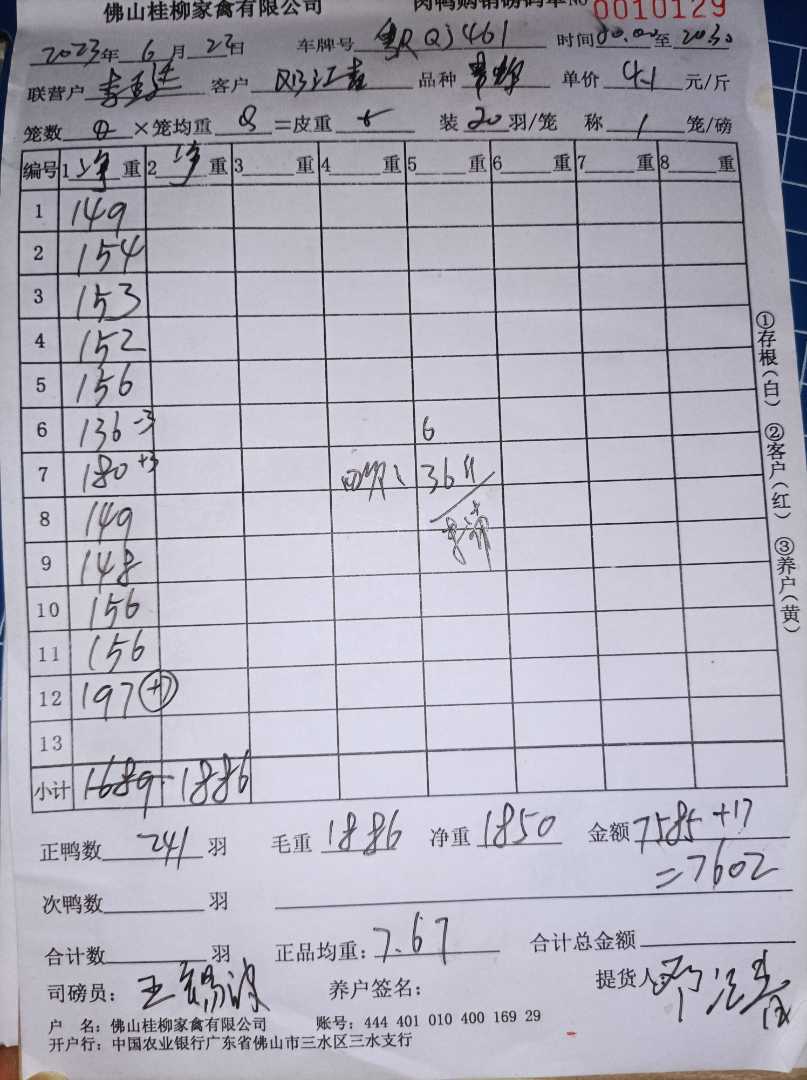 佛山桂柳家禽有限公司 肉鸭购销磅码单 No 0010129
2023年 6月 23日 车牌号 461 时间 至 2030
联营户 客户 品种 单价 4.1 元/斤
笼数 ×笼均重 =皮重 装 20 羽/笼 称 1 笼/磅
编号 1 净 重 2 净 重 3 重 4 重 5 重 6 重 7 重 8 重
1 149
2 154
3 153
4 152
5 156
6 136 -3 6
7 180 +3 36斤
8 149
9 148
10 156
11 156
12 197
13
小计 1689 1886
正鸭数 241 羽 毛重 1886 净重 1850 金额 7585+17
=7602
次鸭数 羽
合计数 羽 正品均重: 7.67 合计总金额
司磅员: 王锡波 养户签名: 提货人
户 名: 佛山桂柳家禽有限公司 账号: 444 401 010 400 169 29
开户行: 中国农业银行广东省佛山市三水区三水支行
①存根(白) ②客户(红) ③养户(黄)